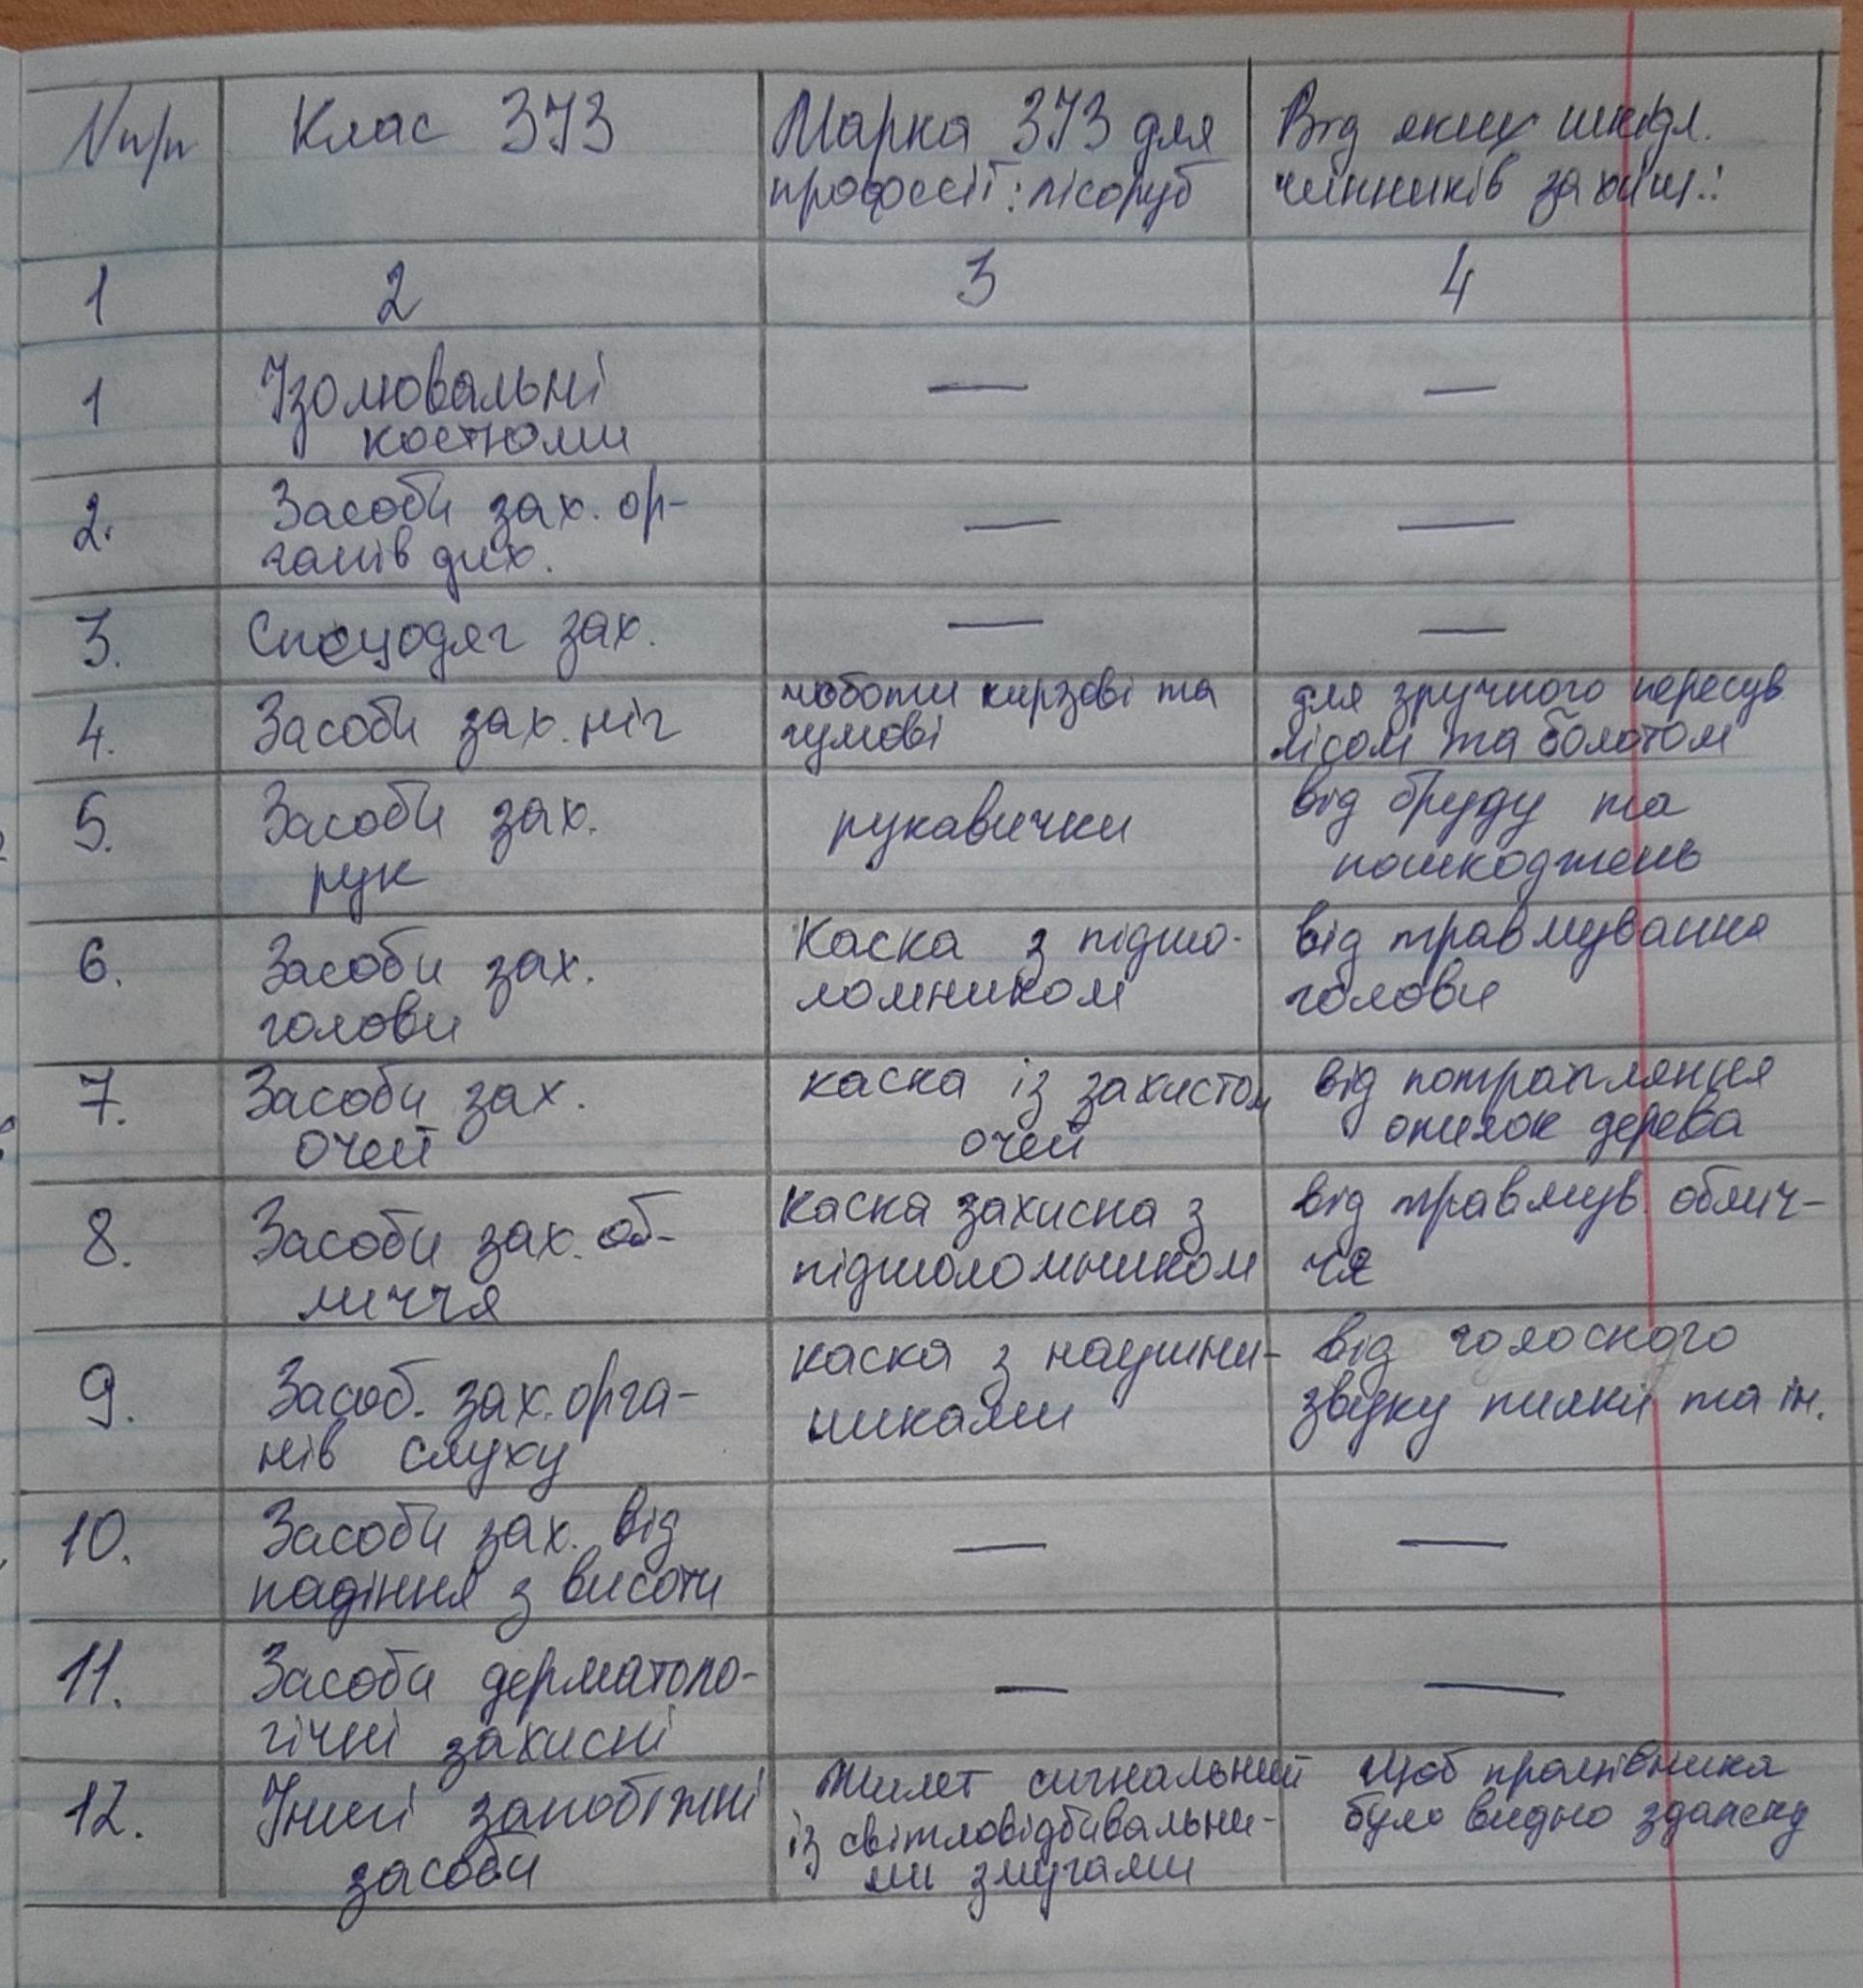 №п/п
Клас ЗІЗ
Марка ЗІЗ для
професії: лісоруб
Від яких шкідл.
чинників захищ.:
1
2
3
4
1
Ізолювальні
костюми
—
—
2.
Засоби зах. ор-
ганів дих.
—
—
3.
Спецодяг зах.
—
—
4.
Засоби зах. ніг
чоботи кирзові та
гумові
для зручного пересув
лісом та болотом
5.
Засоби зах.
рук
рукавички
від бруду та
пошкоджень
6.
Засоби зах.
голови
Каска з підшо-
ломником
від травмування
голови
7.
Засоби зах.
очей
каска із захистом
очей
від потрапляння
опилок дерева
8.
Засоби зах. об-
личчя
каска захисна з
підшоломником
від травмув. облич-
чя
9.
Засоб. зах. орга-
нів слуху
каска з наушни-
никами
від голосного
звуку пилки та ін.
10.
Засоби зах. від
падіння з висоти
—
—
11.
Засоби дерматоло-
гічні захисні
—
—
12.
Інші запобіжні
засоби
Жилет сигнальний
із світловідбивальни-
ми змугами
Щоб працівника
було видно здалеку